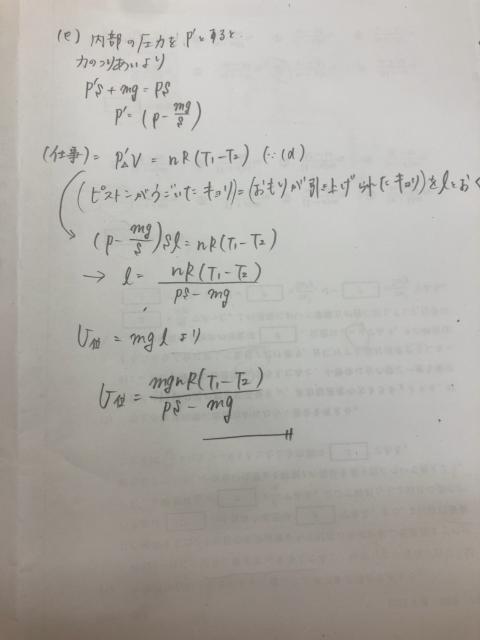 (e) 内部の圧力をP'とすると、
力のつりあいより
P'S + mg = PS
P' = (P - mg/S)
(仕事) = P'ΔV = nR(T₁-T₂) (∵(d)
(ピストンがうごいたキョリ)=(おもりが引き上げられたキョリ)をlとおく
(P - mg/S)Sl = nR(T₁-T₂)
→ l = nR(T₁-T₂)/PS - mg
U位 = mgl より
U位 = mgnR(T₁-T₂)/PS - mg